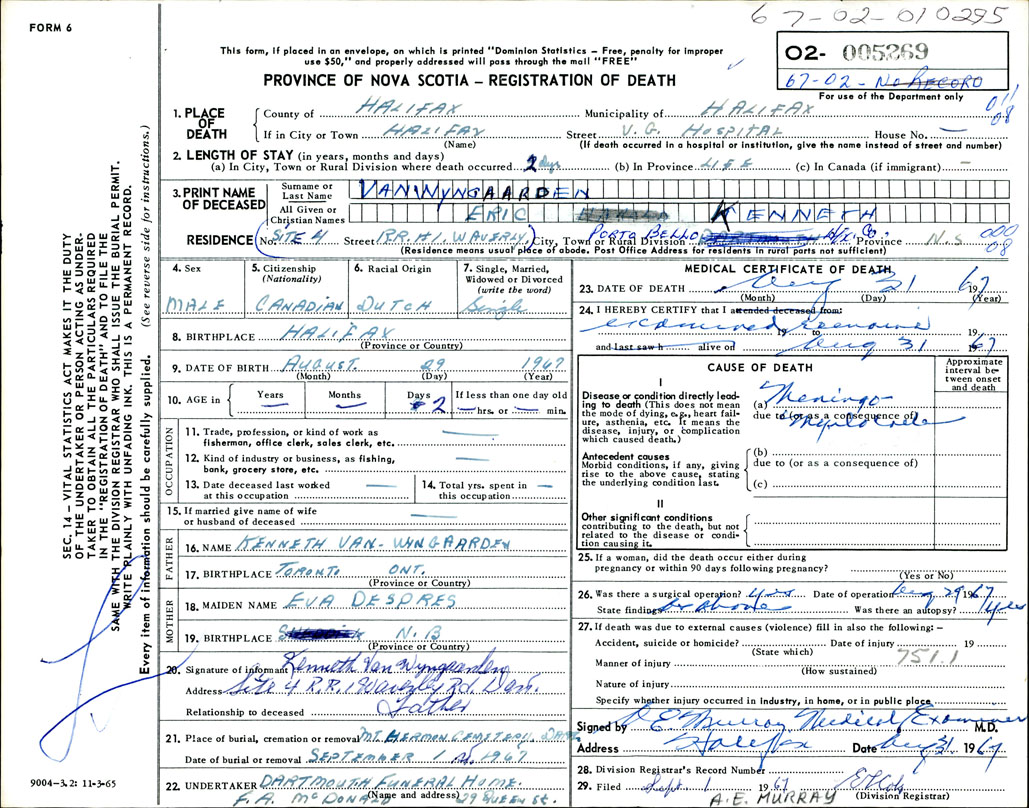 67-02-010295
FORM 6
This form, if placed in an envelope, on which is printed "Dominion Statistics – Free, penalty for improper
use $50," and properly addressed will pass through the mail "FREE"
02- 005269
67-02-No RECORD
For use of the Department only
PROVINCE OF NOVA SCOTIA – REGISTRATION OF DEATH
011
08
1. PLACE OF DEATH County of HALIFAX Municipality of HALIFAX
If in City or Town HALIFAX Street V.G. HOSPITAL House No. —
(Name) (If death occurred in a hospital or institution, give the name instead of street and number)
2. LENGTH OF STAY (in years, months and days)
(a) In City, Town or Rural Division where death occurred 2 days (b) In Province LIFE (c) In Canada (if immigrant) —
3. PRINT NAME OF DECEASED Surname or Last Name VAN WYNGAARDEN
All Given or Christian Names ERIC KENNETH
RESIDENCE (No. SITE 4 Street R.R. #1. WAVERLY) City, Town or Rural Division PORTO BELLO Hfx. Co. Province N.S. 000
08
(Residence means usual place of abode. Post Office Address for residents in rural parts not sufficient)
4. Sex 5. Citizenship (Nationality) 6. Racial Origin 7. Single, Married, Widowed or Divorced (write the word)
MALE CANADIAN DUTCH Single
8. BIRTHPLACE HALIFAX
(Province or Country)
9. DATE OF BIRTH AUGUST 29 1967
(Month) (Day) (Year)
10. AGE in Years — Months — Days 2 If less than one day old — hrs. or — min.
OCCUPATION
11. Trade, profession, or kind of work as
fisherman, office clerk, sales clerk, etc. —
12. Kind of industry or business, as fishing,
bank, grocery store, etc. —
13. Date deceased last worked at this occupation — 14. Total yrs. spent in this occupation —
15. If married give name of wife
or husband of deceased
FATHER
16. NAME KENNETH VAN-WYNGAARDEN
17. BIRTHPLACE TORONTO ONT.
(Province or Country)
MOTHER
18. MAIDEN NAME EVA DESPRES
19. BIRTHPLACE N.B
(Province or Country)
20. Signature of informant Kenneth Van Wyngaarden
Address Site 4 R.R. 1 Waverley Rd. Dart.
Relationship to deceased Father
21. Place of burial, cremation or removal MT. HERMAN CEMETERY DART.
Date of burial or removal SEPTEMBER 1 1967
22. UNDERTAKER DARTMOUTH FUNERAL HOME.
(Name and address)
F.A. McDONALD 29 QUEEN St.
MEDICAL CERTIFICATE OF DEATH
23. DATE OF DEATH Aug 31 1967
(Month) (Day) (Year)
24. I HEREBY CERTIFY that I attended deceased from:
examined remains 19 to 19
and last saw h alive on Aug 31 1967
CAUSE OF DEATH
Approximate interval between onset and death
I
Disease or condition directly leading to death (This does not mean the mode of dying, e.g., heart failure, asthenia, etc. It means the disease, injury, or complication which caused death.)
(a) Meningo
due to (or as a consequence of)
Myelocele
Antecedent causes
Morbid conditions, if any, giving rise to the above cause, stating the underlying condition last.
(b)
due to (or as a consequence of)
(c)
II
Other significant conditions
contributing to the death, but not related to the disease or condition causing it.
25. If a woman, did the death occur either during
pregnancy or within 90 days following pregnancy?
(Yes or No)
26. Was there a surgical operation? yes Date of operation Aug 29 1967
State findings as above Was there an autopsy? yes
27. If death was due to external causes (violence) fill in also the following: –
Accident, suicide or homicide? Date of injury 19
(State which)
751.1
Manner of injury
(How sustained)
Nature of injury
Specify whether injury occurred in industry, in home, or in public place
Signed by Murray Medical Examiner M.D.
Address Halifax Date Aug 31 1967
28. Division Registrar's Record Number
29. Filed Sept. 1 1967
(Division Registrar)
A.E. MURRAY
SEC. 14 – VITAL STATISTICS ACT MAKES IT THE DUTY
OF THE UNDERTAKER OR PERSON ACTING AS UNDER-
TAKER TO OBTAIN ALL THE PARTICULARS REQUIRED
IN THE "REGISTRATION OF DEATH" AND TO FILE THE
SAME WITH THE DIVISION REGISTRAR WHO SHALL ISSUE THE BURIAL PERMIT.
WRITE PLAINLY WITH UNFADING INK. THIS IS A PERMANENT RECORD.
Every item of information should be carefully supplied. (See reverse side for instructions.)
9004–3.2: 11-3-65